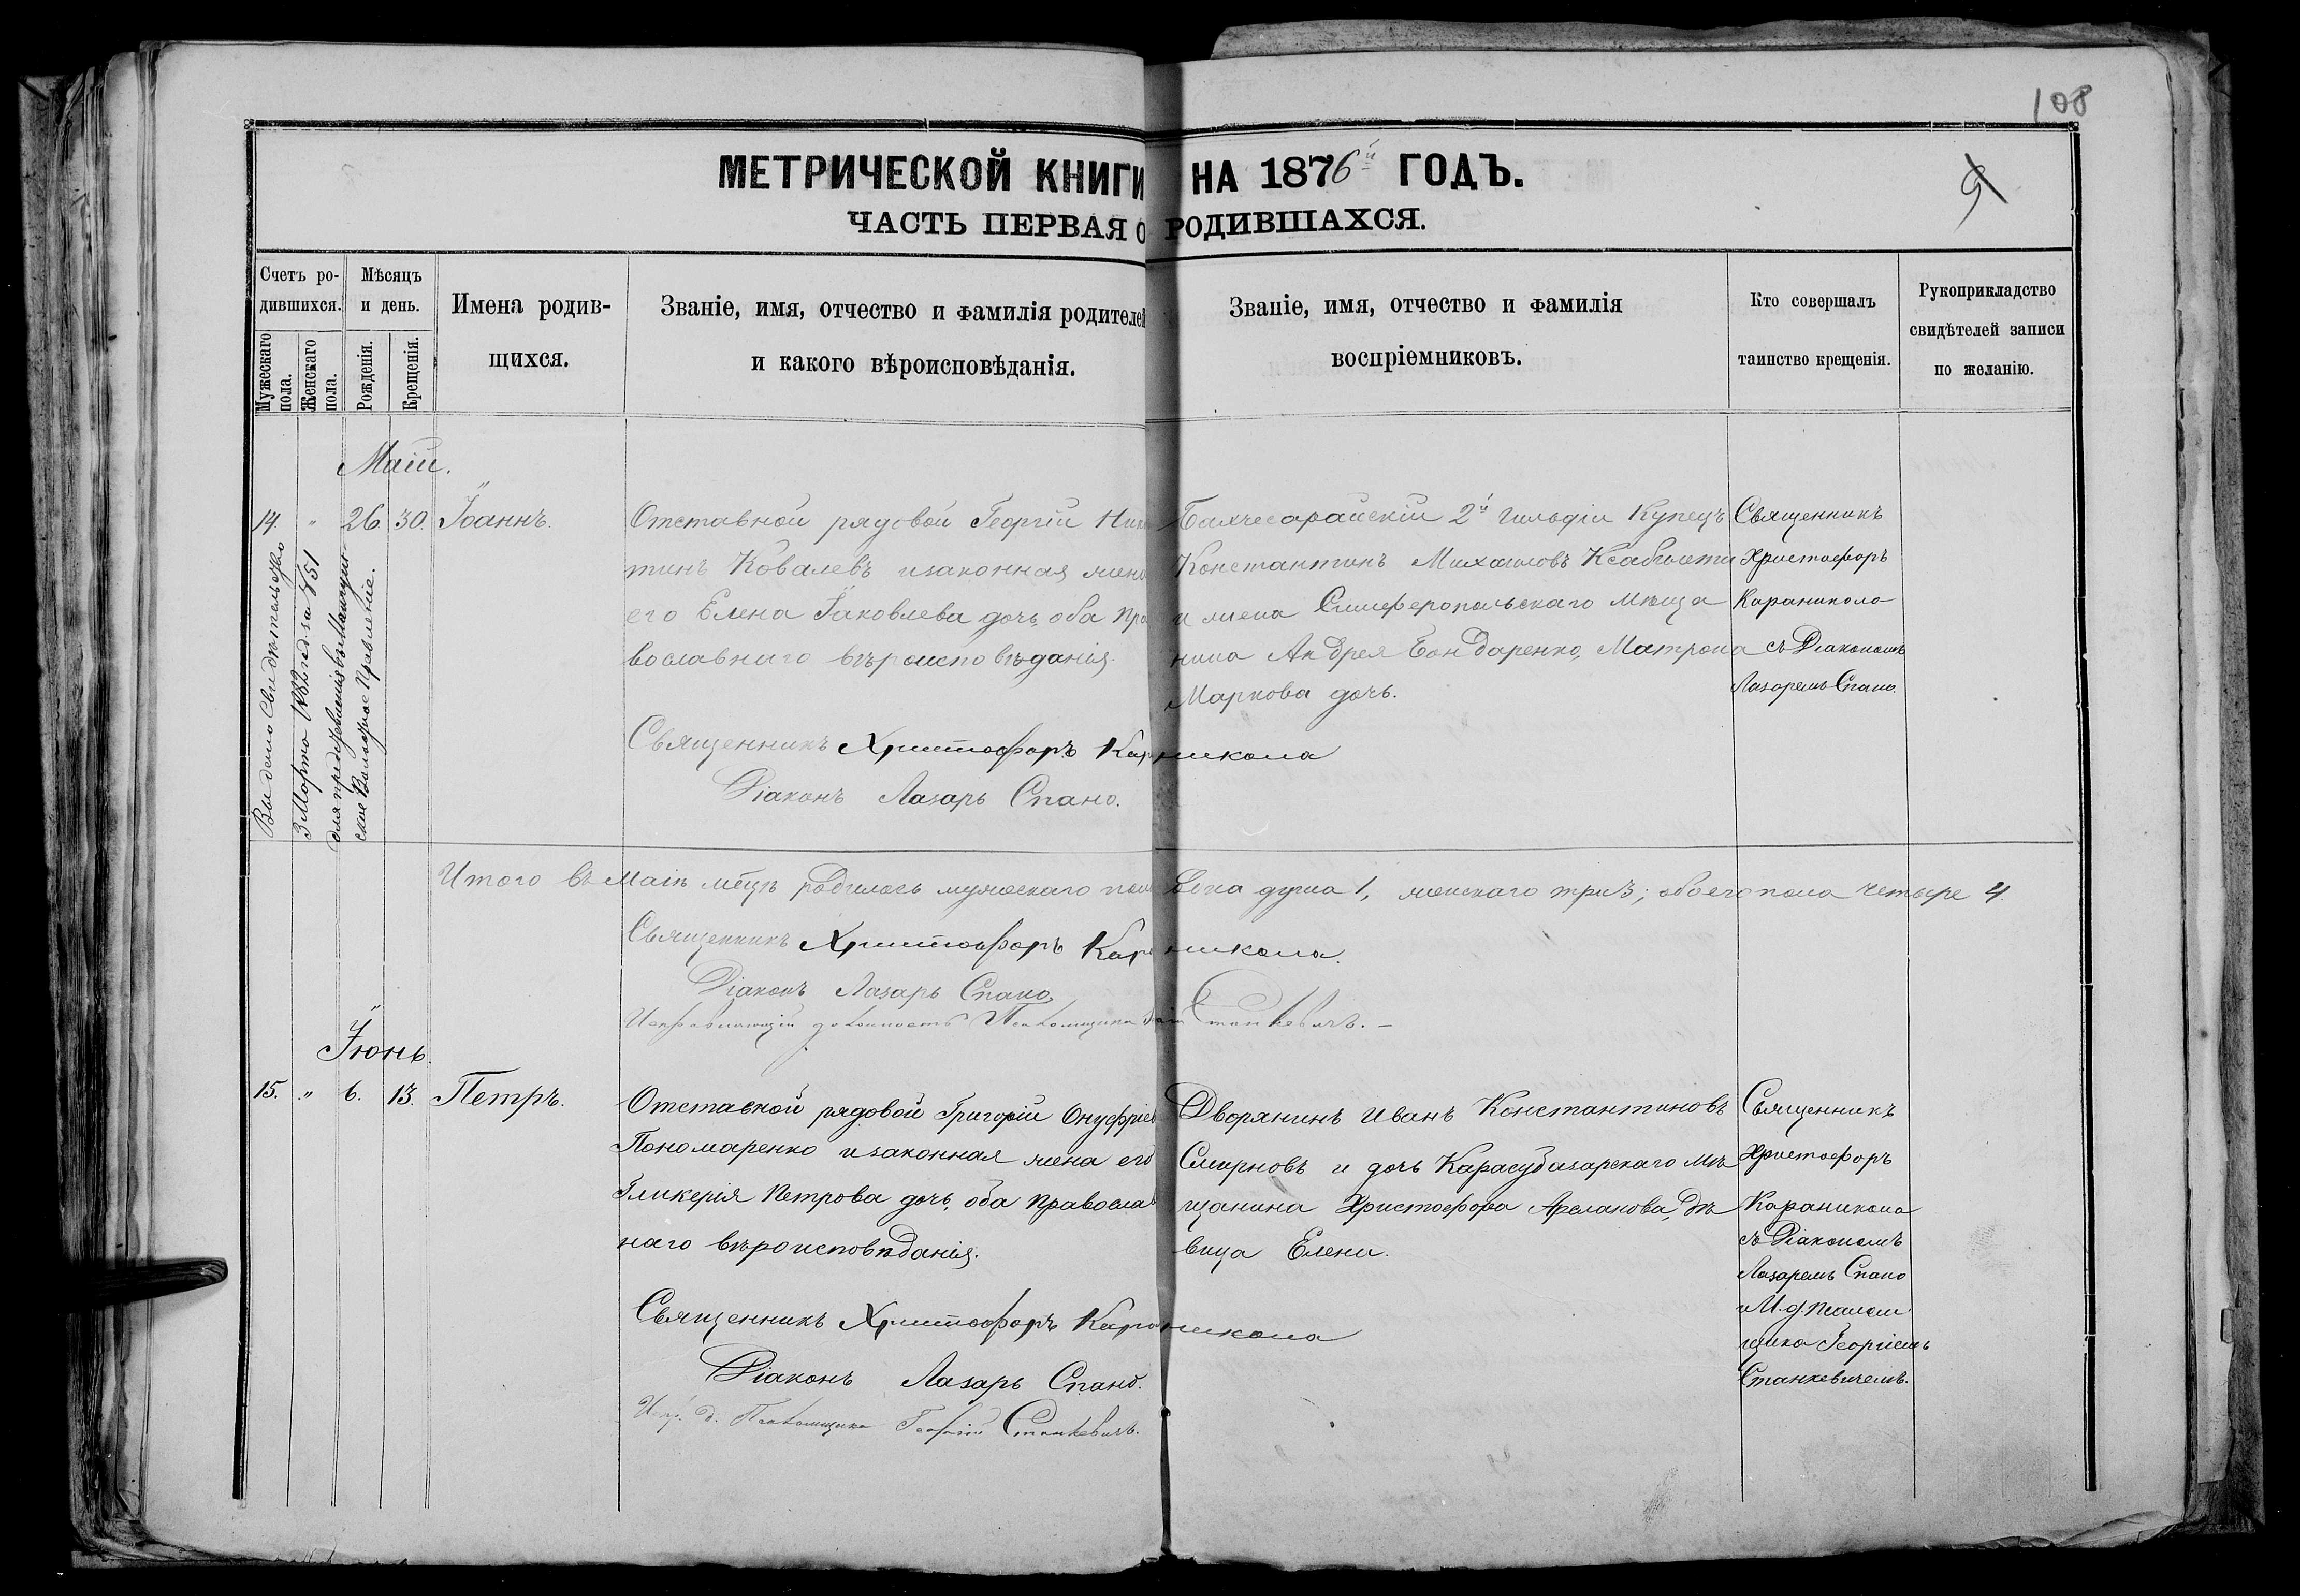 108
9
МЕТРИЧЕСКОЙ КНИГИ НА 1876й ГОДЪ.
ЧАСТЬ ПЕРВАЯ О РОДИВШАХСЯ.
Счетъ ро-
дившихся.
Мужескаго
пола.
Женскаго
пола.
Мѣсяцъ
и день.
Рожденія.
Крещенія.
Имена родив-
щихся.
Званіе, имя, отчество и фамилія родителей
и какого вѣроисповѣданія.
Званіе, имя, отчество и фамилія
воспріемниковъ.
Кто совершалъ
таинство крещенія.
Рукоприкладство
свидѣтелей записи
по желанію.
Маій.
14. " 26 30. Іоаннъ.
Отставной рядовой Георгій Ники
тинъ Ковалевъ изаконная жена
его Елена Іаковлева дочь, оба пра
вославнаго вѣроисповѣданія.
Бахчесарайскій 2й гильдіи Купецъ
Константинъ Михаиловъ
и жена Симферопольскаго мѣща
нина Андрея Бондаренко, Матрона
Маркова дочь.
Священникъ
Христофоръ
Караникола
съ Діакономъ
Лазаремъ Спано.
Священникъ Христофоръ Караникола
Діаконъ Лазарь Спано.
Выдано Свидѣтельство
3 Марта 1882 год. за №51
для представленія въ
ское Волостное Правленіе.
Итого въ Маіѣ мцѣ родилось мужескаго пола одна душа 1, женскаго три 3; обоего пола четыре 4.
Священникъ Христофоръ Караникола.
Діаконъ Лазарь Спано
Исправляющій должность Псаломщика Станкевичъ. –
Іюнь.
15. " 6. 13. Петръ.
Отставной рядовой Григорій Онуфріев
Пономаренко изаконная жена его
Гликерія Петрова дочь, оба православ
наго вѣроисповѣданія.
Дворянинъ Иванъ Константиновъ
Смирновъ и дочь Карасубазарскаго мѣ
щанина Христофора Арсланова, дѣ
вица Елена.
Священникъ
Христофоръ
Караникола
съ Діакономъ
Лазаремъ Спано
и И. д. псалом
щика Георгіемъ
Станкевичемъ.
Священникъ Христофоръ Караникола
Діаконъ Лазарь Спано.
Испр. д. Псаломщика Георгій Станкевичъ.